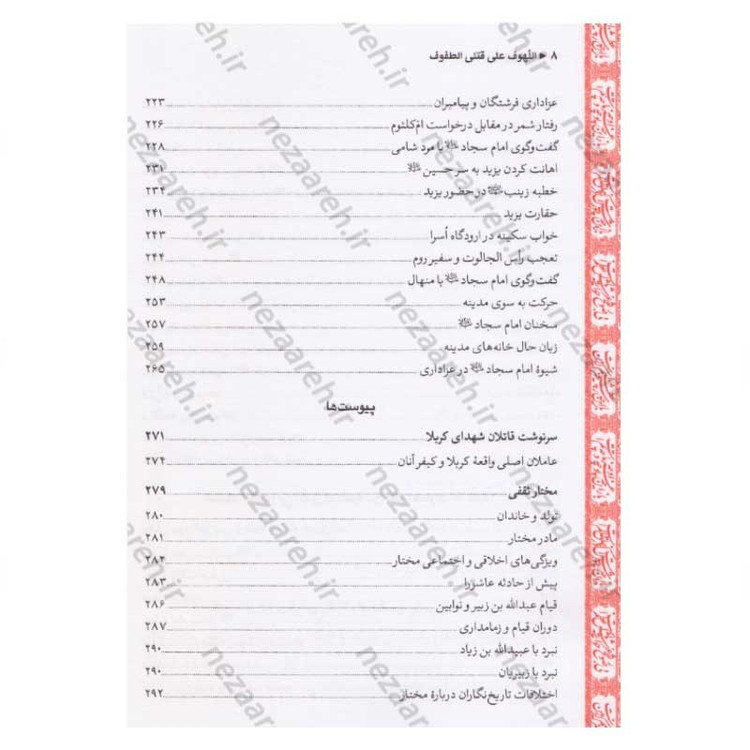 ۸ ► اللهوف علی قتلی الطفوف
عزاداری فرشتگان و پیامبران ۲۲۳
رفتار شمر در مقابل درخواست ام‌کلثوم ۲۲۶
گفت‌وگوی امام سجاد با مرد شامی ۲۲۸
اهانت کردن یزید به سر حسین ۲۳۱
خطبه زینب در حضور یزید ۲۳۴
حقارت یزید ۲۴۱
خواب سکینه در اردوگاه اُسرا ۲۴۳
تعجب رأس الجالوت و سفیر روم ۲۴۴
گفت‌وگوی امام سجاد با منهال ۲۴۸
حرکت به سوی مدینه ۲۵۳
سخنان امام سجاد ۲۵۷
زبان حال خانه‌های مدینه ۲۵۹
شیوهٔ امام سجاد در عزاداری ۲۶۵
پیوست‌ها
سرنوشت قاتلان شهدای کربلا ۲۷۱
عاملان اصلی واقعهٔ کربلا و کیفر آنان ۲۷۴
مختار ثقفی ۲۷۹
تولد و خاندان ۲۸۰
مادر مختار ۲۸۱
ویژگی‌های اخلاقی و اجتماعی مختار ۲۸۲
پیش از حادثه عاشورا ۲۸۳
قیام عبدالله بن زبیر و توابین ۲۸۶
دوران قیام و زمامداری ۲۸۷
نبرد با عبیدالله بن زیاد ۲۹۰
نبرد با زبیریان ۲۹۰
اختلافات تاریخ‌نگاران دربارهٔ مختار ۲۹۲
nezaareh.ir